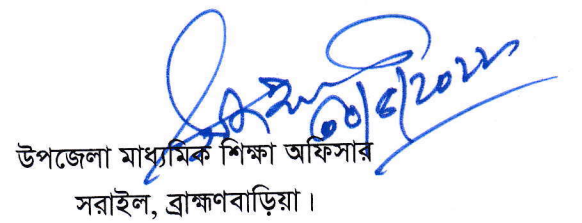 উপজেলা মাধ্যমিক শিক্ষা অফিসার
সরাইল, ব্রাহ্মণবাড়িয়া।